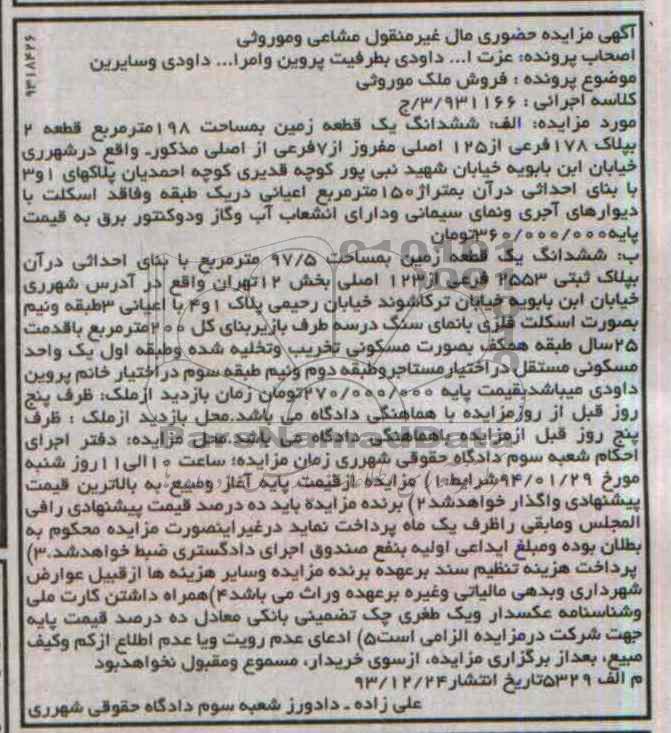 آگهی مزایده حضوری مال غیرمنقول مشاعی وموروثی
اصحاب پرونده: عزت ا... داودی بطرفیت پروین وامرا... داودی وسایرین
موضوع پرونده : فروش ملک موروثی
کلاسه اجرائی : ۳/۹۳۱۱۶۶/ج
مورد مزایده: الف: ششدانگ یک قطعه زمین بمساحت ۱۹۸مترمربع قطعه ۲
بپلاک ۱۷۸فرعی از۱۲۵ اصلی مفروز از۷فرعی از اصلی مذکور. واقع درشهرری
خیابان ابن بابویه خیابان شهید نبی پور کوچه قدیری کوچه احمدیان پلاکهای ۱و۳
با بنای احداثی درآن بمتراژ۱۵۰مترمربع اعیانی دریک طبقه وفاقد اسکلت با
دیوارهای آجری ونمای سیمانی ودارای انشعاب آب وگاز ودوکنتور برق به قیمت
پایه۳۶۰/۰۰۰/۰۰۰تومان
ب: ششدانگ یک قطعه زمین بمساحت ۹۷/۵ مترمربع با بنای احداثی درآن
بپلاک ثبتی ۲۵۵۳ فرعی از۱۲۳ اصلی بخش ۱۲تهران واقع در آدرس شهرری
خیابان ابن بابویه خیابان ترکاشوند خیابان رحیمی پلاک ۱و۴ با اعیانی ۳طبقه ونیم
بصورت اسکلت فلزی بانمای سنگ درسه طرف بازیربنای کل ۲۰۰مترمربع باقدمت
۲۵سال طبقه همکف بصورت مسکونی تخریب وتخلیه شده وطبقه اول یک واحد
مسکونی مستقل دراختیارمستاجروطبقه دوم ونیم طبقه سوم دراختیار خانم پروین
داودی میباشدبقیمت پایه ۲۷۰/۰۰۰/۰۰۰تومان زمان بازدید ازملک: ظرف پنج
روز قبل از روزمزایده با هماهنگی دادگاه می باشد.محل بازدید ازملک : ظرف
پنج روز قبل ازمزایده باهماهنگی دادگاه می باشد.محل مزایده: دفتر اجرای
احکام شعبه سوم دادگاه حقوقی شهرری زمان مزایده: ساعت ۱۰الی۱۱روز شنبه
مورخ ۹۴/۰۱/۲۹شرایط:۱) مزایده ازقیمت پایه آغاز ومبیع به بالاترین قیمت
پیشنهادی واگذار خواهدشد۲) برنده مزایده باید ده درصد قیمت پیشنهادی رافی
المجلس ومابقی راظرف یک ماه پرداخت نماید درغیراینصورت مزایده محکوم به
بطلان بوده ومبلغ ایداعی اولیه بنفع صندوق اجرای دادگستری ضبط خواهدشد.۳)
پرداخت هزینه تنظیم سند برعهده برنده مزایده وسایر هزینه ها ازقبیل عوارض
شهرداری وبدهی مالیاتی وغیره برعهده وراث می باشد۴)همراه داشتن کارت ملی
وشناسنامه عکسدار ویک طغری چک تضمینی بانکی معادل ده درصد قیمت پایه
جهت شرکت درمزایده الزامی است۵) ادعای عدم رویت ویا عدم اطلاع ازکم وکیف
مبیع، بعداز برگزاری مزایده، ازسوی خریدار، مسموع ومقبول نخواهدبود
م الف ۵۳۲۹تاریخ انتشار۹۳/۱۲/۲۴
علی زاده ـ دادورز شعبه سوم دادگاه حقوقی شهرری
۹۳۱۸۴۲۶
ParsNamadData